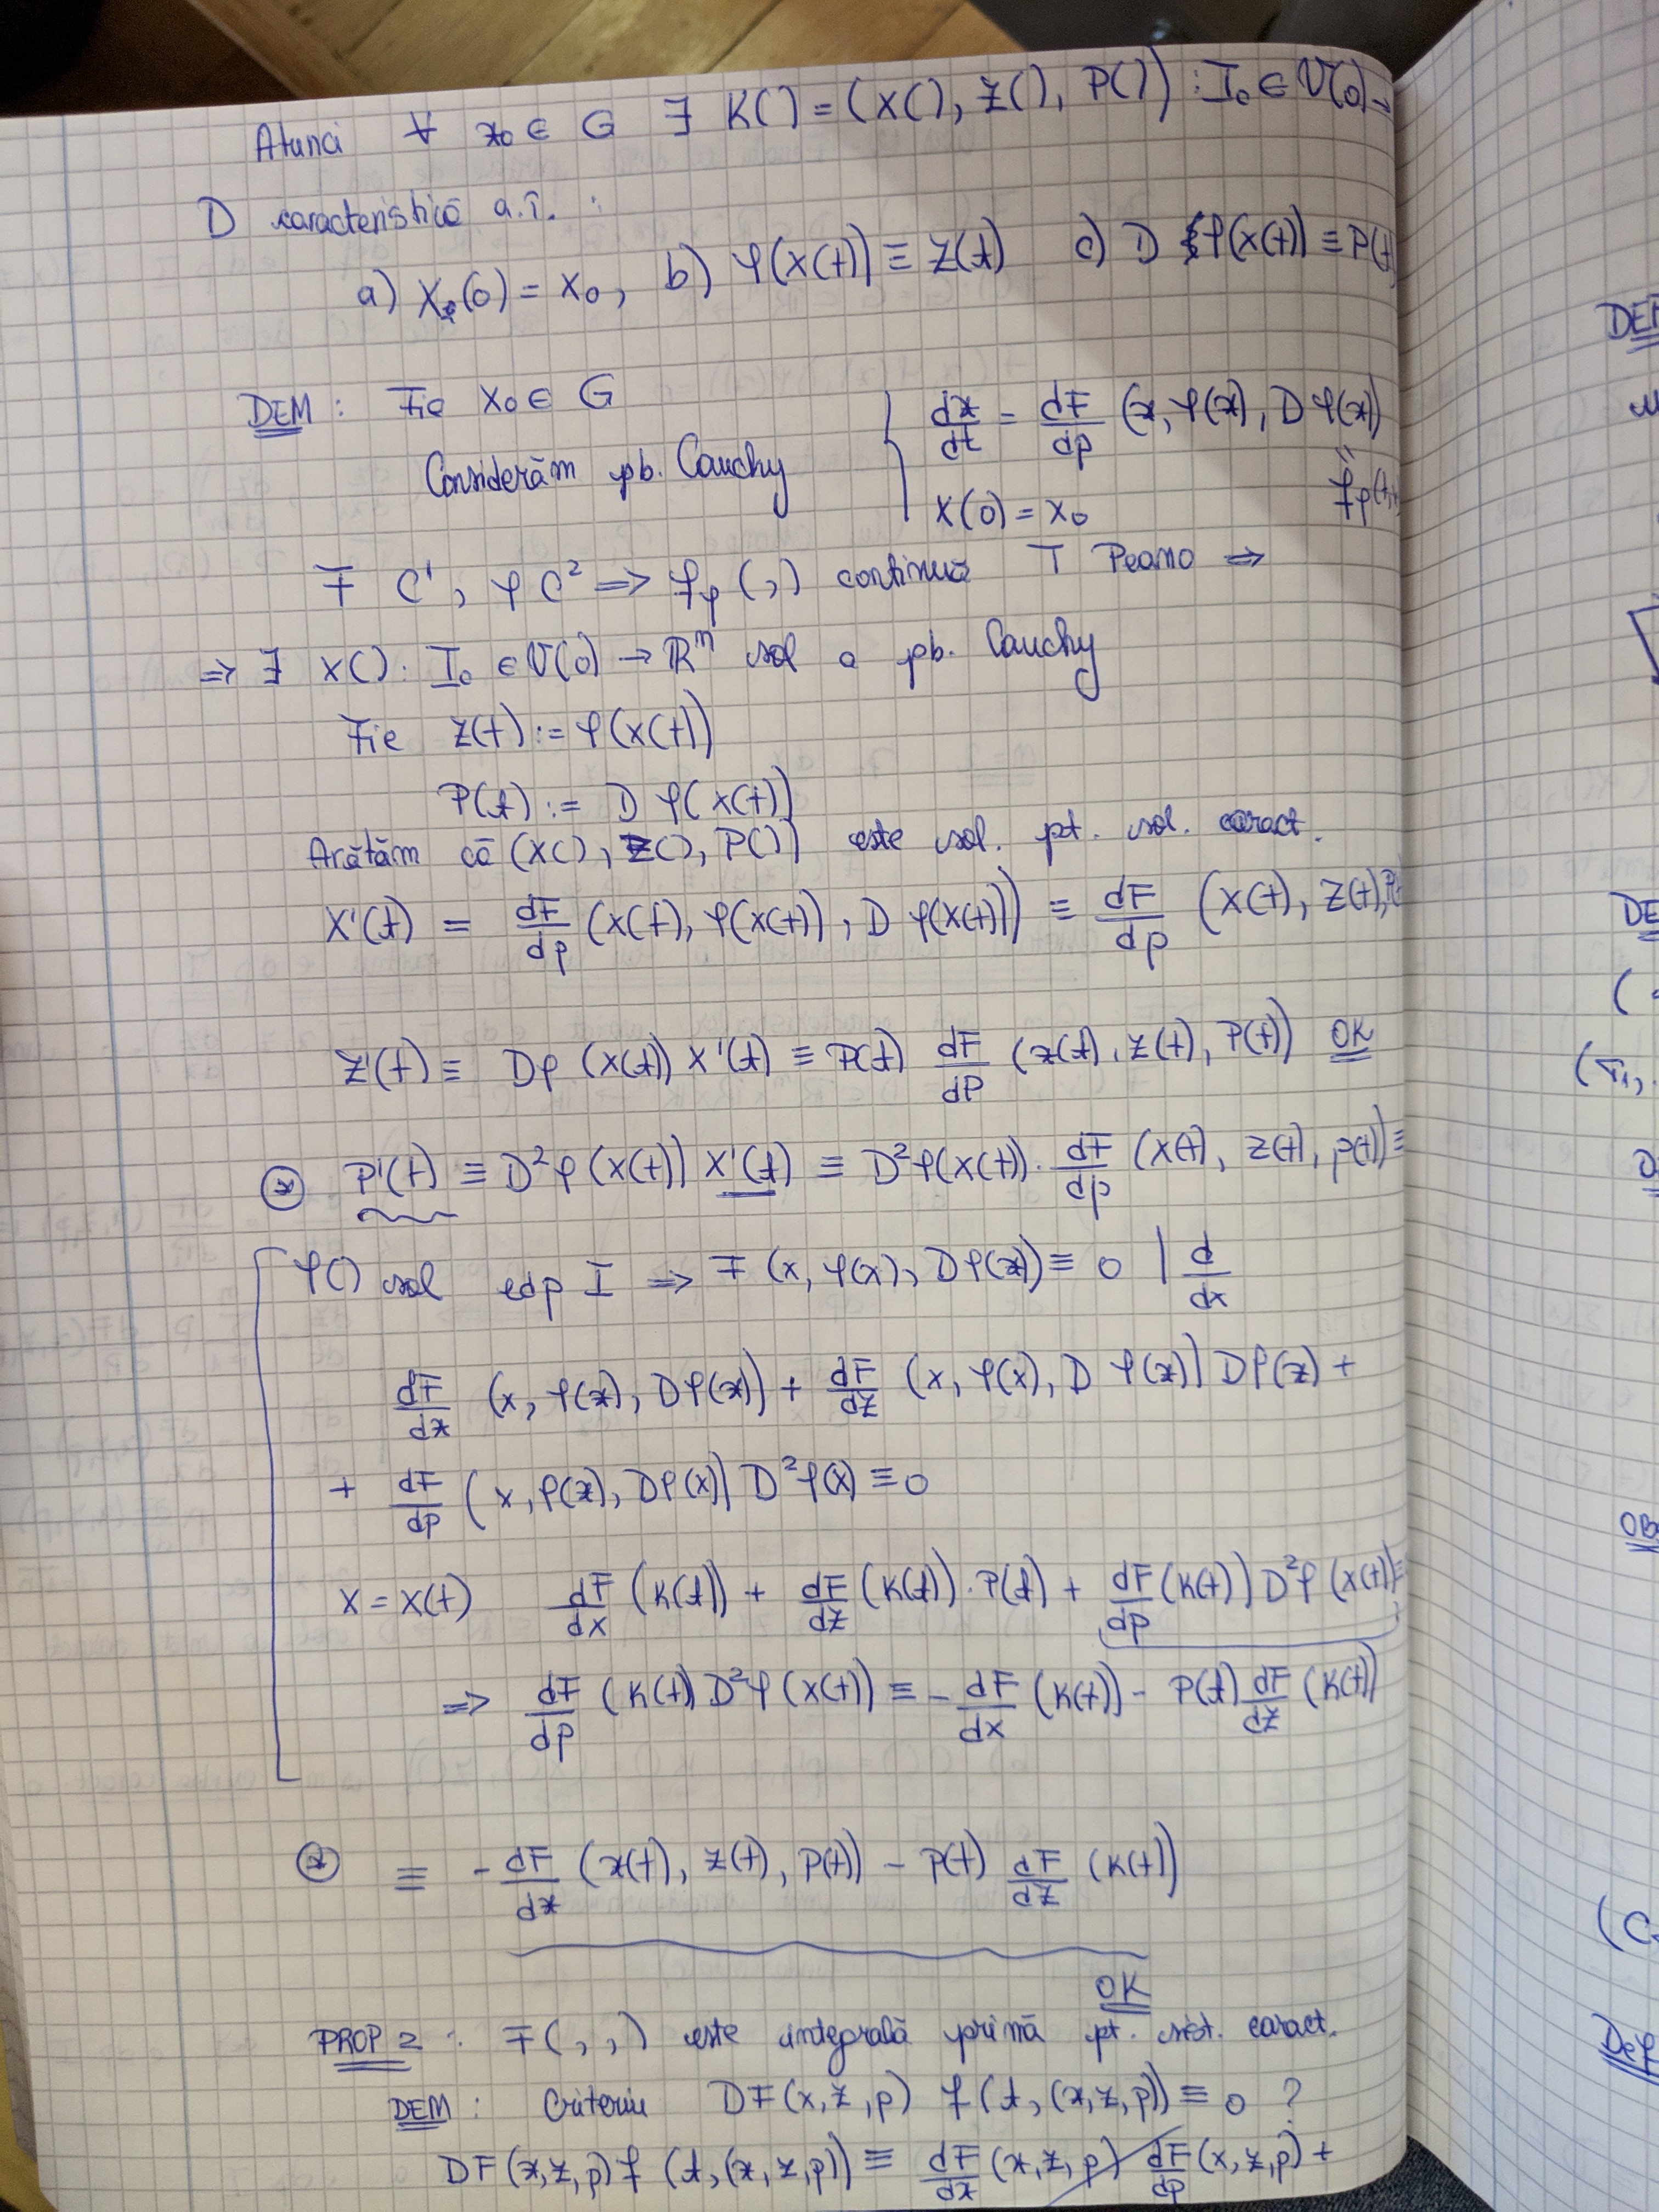 Atunci ∀ x₀ ∈ G ∃ K() = (X(), Z(), P()) : I₀ ∈ V(0) →
D caracteristică a.î. :
a) X(0) = x₀, b) φ(X(t)) ≡ Z(t) c) D φ(X(t)) ≡ P(t)
DEM : Fie x₀ ∈ G
Considerăm pb. Cauchy { dx/dt = dF/dp (x, φ(x), Dφ(x))
x(0) = x₀
F C¹, φ C² ⇒ f_φ(,) continuă T Peano ⇒
⇒ ∃ X() : I₀ ∈ V(0) → ℝⁿ sol a pb. Cauchy
Fie Z(t) := φ(X(t))
P(t) := D φ(X(t))
Arătăm că (X(), Z(), P()) este sol. pt. sol. caract.
X'(t) = dF/dp (X(t), φ(X(t)), D φ(X(t))) ≡ dF/dp (X(t), Z(t), P(
Z'(t) ≡ Dφ (X(t)) X'(t) ≡ P(t) dF/dp (x(t), z(t), P(t)) OK
(*) P'(t) ≡ D²φ(X(t)) X'(t) ≡ D²φ(X(t)) · dF/dp (X(t), Z(t), p(t)) ≡
φ() sol edp I ⇒ F(x, φ(x), Dφ(x)) ≡ 0 | d/dx
dF/dx (x, φ(x), Dφ(x)) + dF/dz (x, φ(x), D φ(x)) Dφ(x) +
+ dF/dp (x, φ(x), Dφ(x)) D²φ(x) ≡ 0
x = X(t) dF/dx (K(t)) + dF/dz (K(t)) · P(t) + dF/dp (K(t)) D²φ (X(t)) ≡
⇒ dF/dp (K(t)) D²φ (X(t)) ≡ - dF/dx (K(t)) - P(t) dF/dz (K(t))
(*) ≡ - dF/dx (x(t), z(t), P(t)) - P(t) dF/dz (K(t))
OK
PROP 2 : F(, , ) este integrală primă pt. sist. caract.
DEM : Criteriu DF(x, z, p) f(t, (x, z, p)) ≡ 0 ?
DF(x, z, p) f (t, (x, z, p)) ≡ dF/dx (x, z, p) dF/dp (x, z, p) +